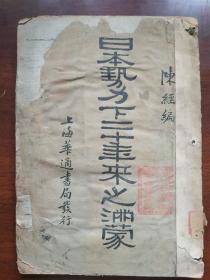 陳經編
日本勢力下二十年來之滿蒙
上海華通書局發行